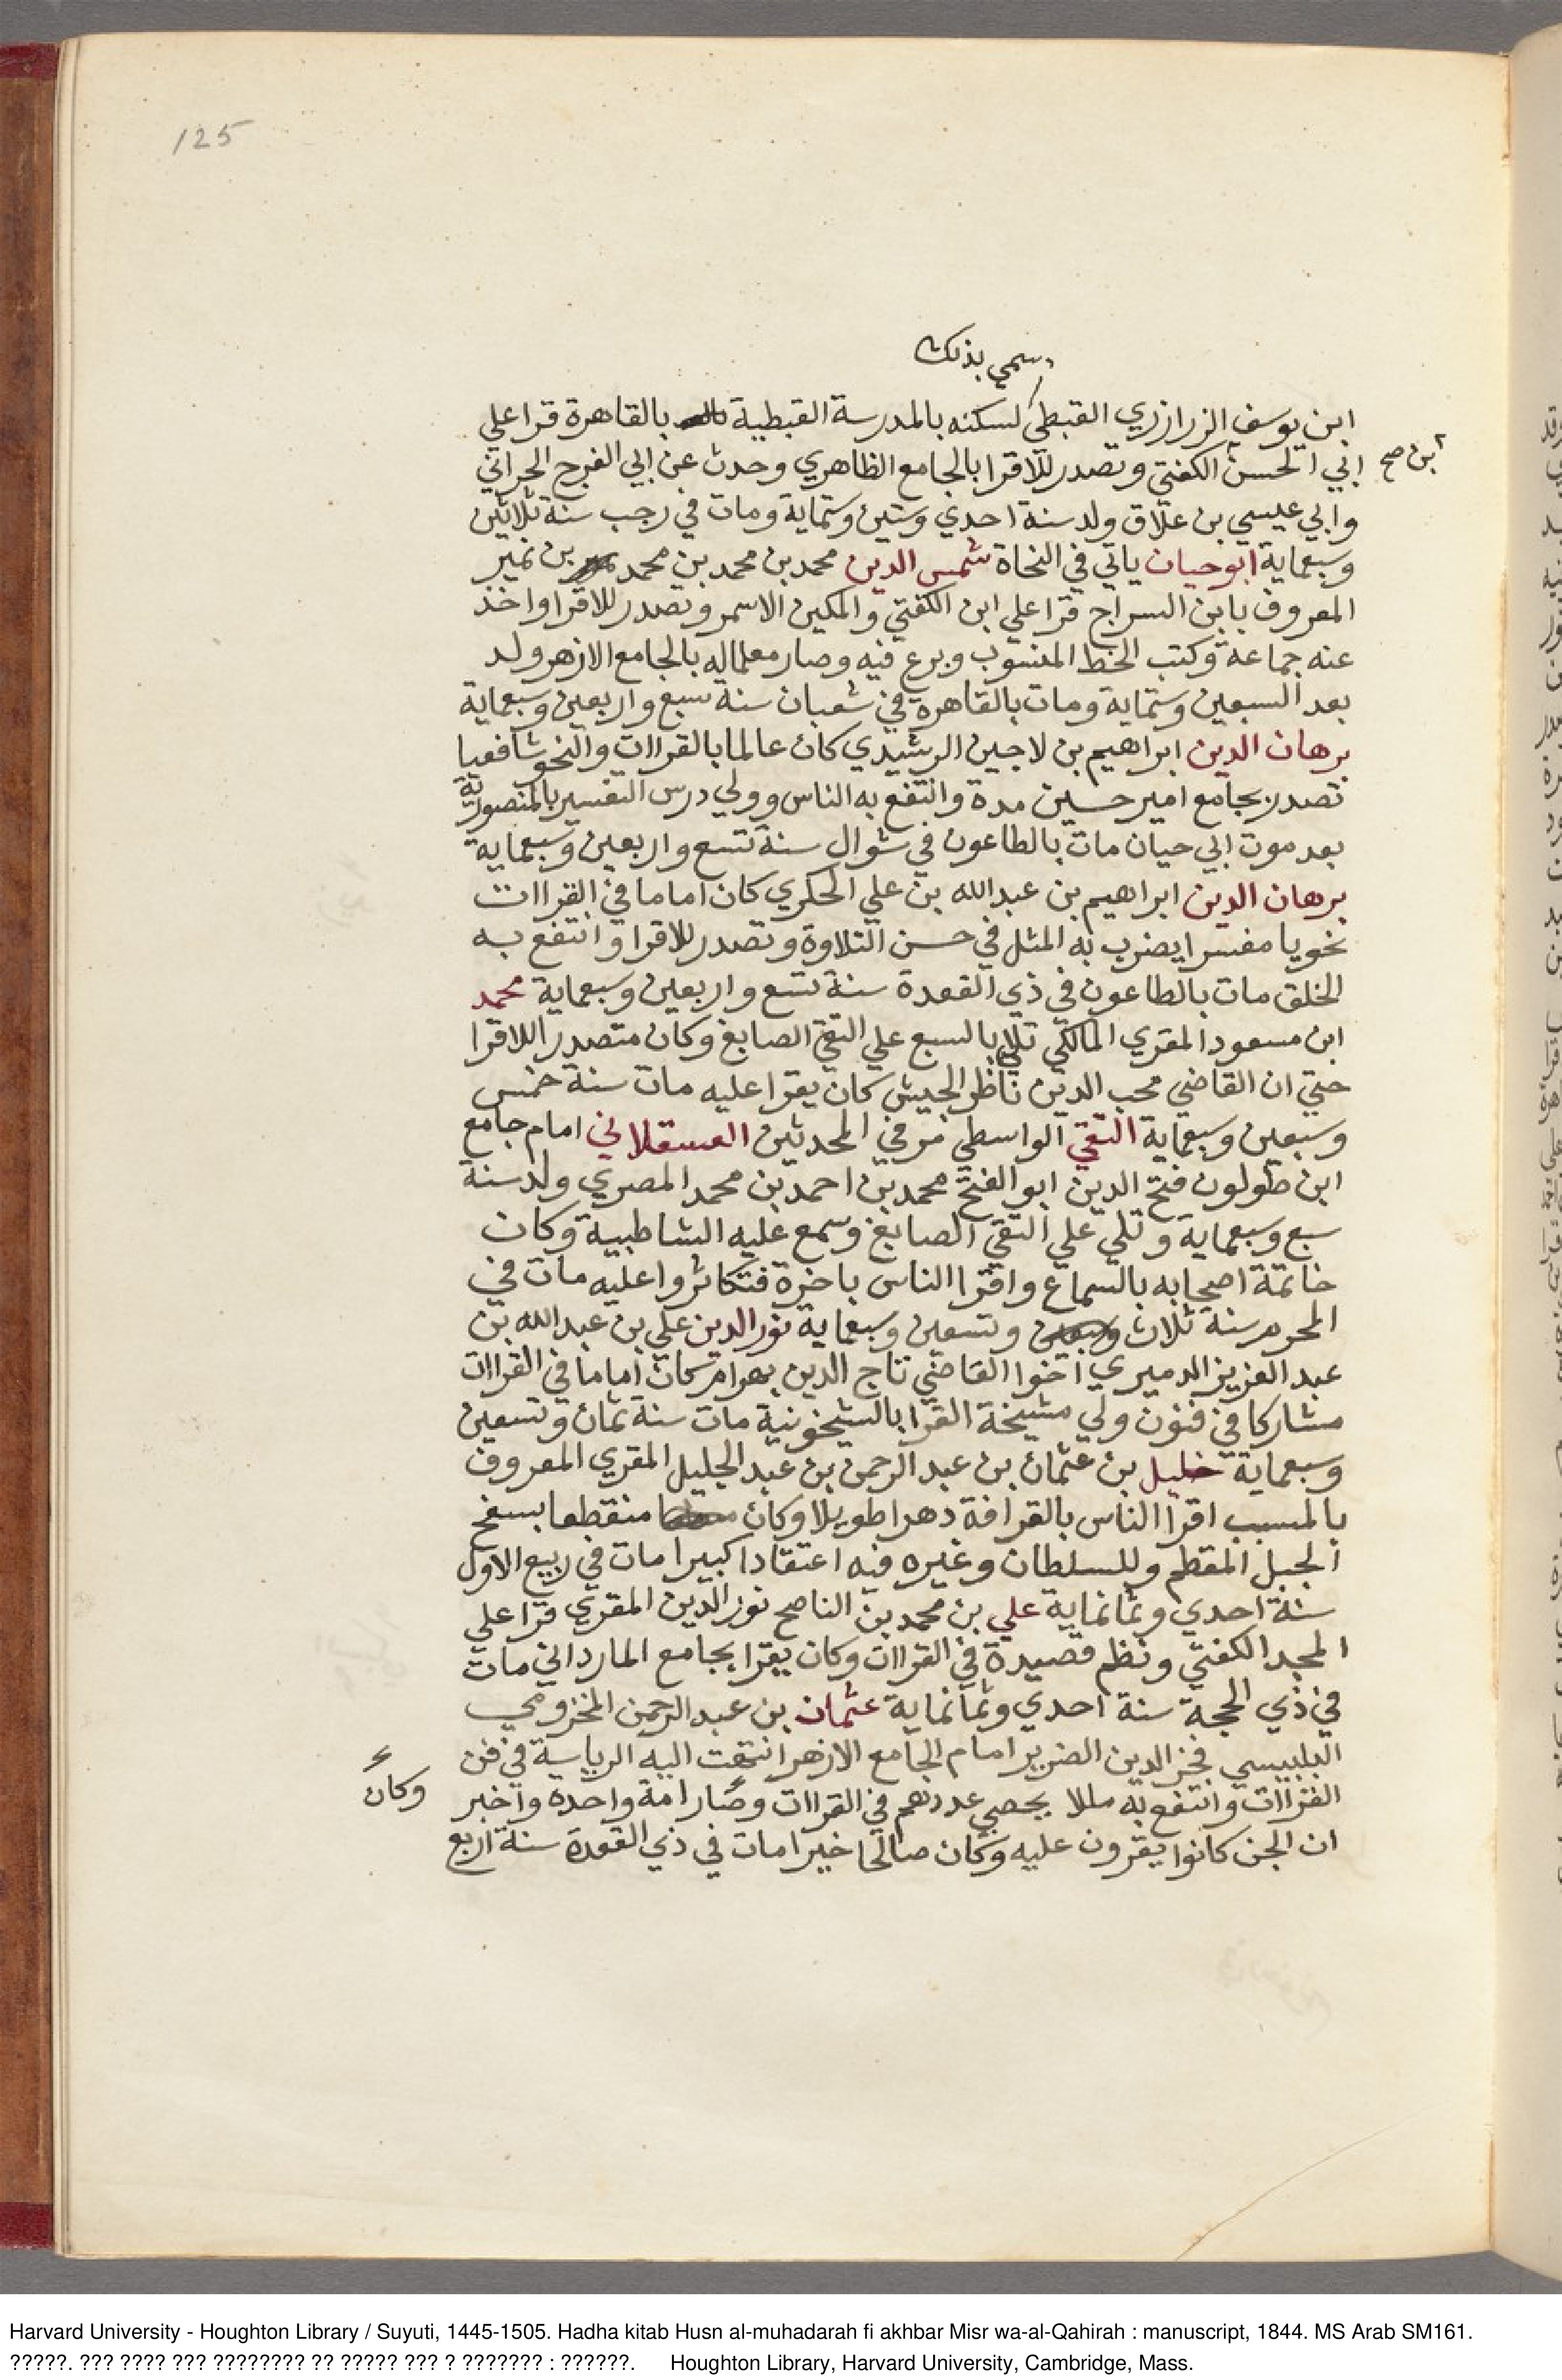 125
وسمي بذلك
ابن يوسف الزرازري القبطي لسكنه بالمدرسة القبطية بالقاهرة قرا علي
ابن صح
ابي الحسن الكفتي وتصدر للاقرا بالجامع الظاهري وحدث عن ابي الفرج الحراني
وابي عيسي بن علاق ولد سنة احدي وستين وستماية ومات في رجب سنة ثلاثين
وسبعماية ابو حيان ياتي في النحاة شمس الدين محمد بن محمد بن محمد بن نمير
المعروف بابن السراج قرا علي ابن الكفتي والمكين الاسمر وتصدر للاقرا واخذ
عنه جماعة وكتب الخط المنسوب وبرع فيه وصار معلما له بالجامع الازهر ولد
بعد السبعين وستماية ومات بالقاهرة في شعبان سنة سبع واربعين وسبعماية
برهان الدين ابراهيم بن لاجين الرشيدي كان عالما بالقراات والنحو شافعيا
تصدر بجامع امير حسين مدة وانتفع به الناس وولي درس التفسير بالمنصورية
بعد موت ابي حيان مات بالطاعون في شوال سنة تسع واربعين وسبعماية
برهان الدين ابراهيم بن عبد الله بن علي الحكري كان اماما في القراات
نحويا مفسرا يضرب به المثل في حسن التلاوة وتصدر للاقرا وانتفع به
الخلق مات بالطاعون في ذي القعدة سنة تسع واربعين وسبعماية محمد
ابن مسعود المقري المالكي تلي بالسبع علي التقي الصايغ وكان متصدرا للاقرا
حتي ان القاضي محب الدين ناظر الجيش كان يقرا عليه مات سنة خمس
وسبعين وسبعماية التقي الواسطي مر في المحدثين العسقلاني امام جامع
ابن طولون فتح الدين ابو الفتح محمد بن احمد بن محمد المصري ولد سنة
سبع وسبعماية وتلي علي التقي الصايغ وسمع عليه الشاطبية وكان
خاتمة اصحابه بالسماع واقرا الناس باخرة فتكاثروا عليه مات في
المحرم سنة ثلاث وتسعين وسبعماية نور الدين علي بن عبد الله بن
عبد العزيز الدميري اخوا القاضي تاج الدين بهرام كان اماما في القراات
مشاركا في فنون ولي مشيخة القرا بالشيخونية مات سنة ثمان وتسعين
وسبعماية خليل بن عثمان بن عبد الرحمن بن عبد الجليل المقري المعروف
بالمسبب اقرا الناس بالقرافة دهرا طويلا وكان منقطعا بسفح
الجبل المقطم وللسلطان وغيره فيه اعتقادا كبيرا مات في ربيع الاول
سنة احدي وثمانماية علي بن محمد بن الناصح نور الدين المقري قرا علي
المجد الكفتي ونظم قصيدة في القراات وكان يقرا بجامع المارداني مات
في ذي الحجة سنة احدي وثمانماية عثمان بن عبد الرحمن المخزومي
البلبيسي فخر الدين الضرير امام الجامع الازهر انتهت اليه الرياسة في فن
القراات وانتفع به مللا يحصي عددهم في القراات وصار امة واحدة واخبر
وكان
ان الجن كانوا يقرون عليه وكان صالحا خيرا مات في ذي القعدة سنة اربع
Harvard University - Houghton Library / Suyuti, 1445-1505. Hadha kitab Husn al-muhadarah fi akhbar Misr wa-al-Qahirah : manuscript, 1844. MS Arab SM161.
?????. ??? ???? ??? ???????? ?? ????? ??? ? ??????? : ??????. Houghton Library, Harvard University, Cambridge, Mass.